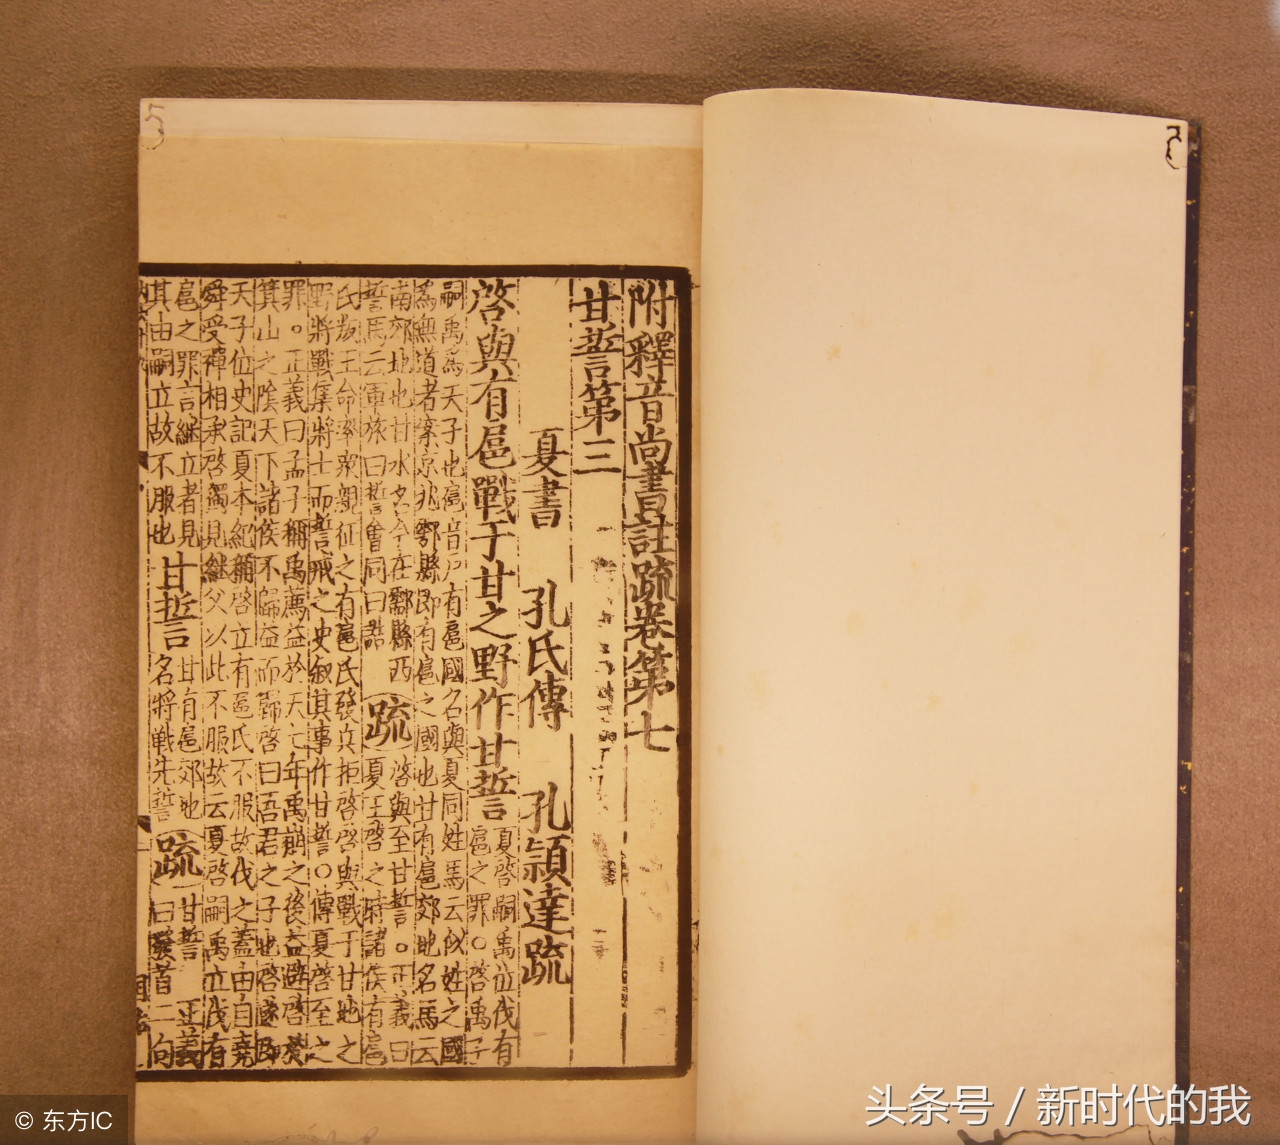 附釋音尚書註疏卷第七
甘誓第三
夏書 孔氏傳 孔頴達疏
啓與有扈戰于甘之野作甘誓 夏啓嗣禹位伐有
扈之罪○啓禹子
嗣禹爲天子也扈音户有扈國名與夏同姓馬云姒姓之國
爲無道者案京兆鄠縣即有扈之國也甘有扈郊地名馬云
南郊地也甘水名今在鄠縣西
誓馬云軍旅曰誓會同曰誥 疏 啓與至甘誓○正義曰
夏王啓之時諸侯有扈
氏叛王命率衆親征之有扈氏發兵拒啓啓與戰于甘地之
野將戰集將士而誓戒之史叙其事作甘誓○傳夏啓至之
罪○正義曰孟子稱禹薦益於天七年禹崩之後益避啓於
箕山之陰天下諸侯不歸益而歸啓曰吾君之子也啓遂即
天子位史記夏本紀稱啓立有扈氏不服故伐之蓋由自堯
舜受禪相承啓獨見繼父以此不服故云夏啓嗣禹立伐有
扈之罪言繼立者見
其由嗣立故不服也 甘誓 甘有扈郊地
名將戰先誓 疏 甘誓 正義
曰發首二句
5
5
© 东方IC
头条号 / 新时代的我